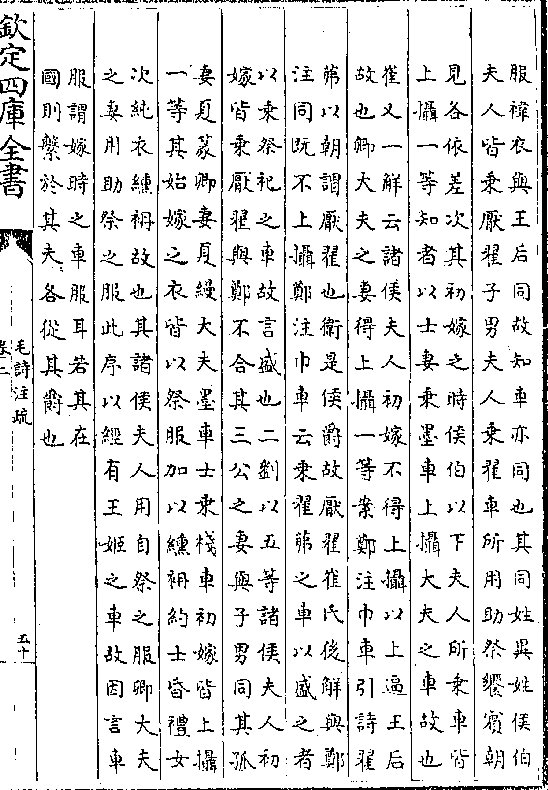 服褘衣與王后同故知車亦同也其同姓異姓侯伯
夫人皆乘厭翟子男夫人乘翟車所用助祭饗賓朝
見各依差次其初嫁之時侯伯以下夫人所乘車皆
上攝一等知者以士妻乘墨車上攝大夫之車故也
崔又一解云諸侯夫人初嫁不得上攝以上逼王后
故也卿大夫之妻得上攝一等案鄭注巾車引詩翟
茀以朝謂厭翟也衛是侯爵故厭翟崔氏後解與鄭
注同既不上攝鄭注巾車云乘翟茀之車以盛之者
以乘祭祀之車故言盛也二劉以五等諸侯夫人初
嫁皆乘厭翟與鄭不合其三公之妻與子男同其孤
妻夏篆卿妻夏縵大夫墨車士乘棧車初嫁皆上攝
一等其始嫁之衣皆以祭服加以纁袡約士昏禮女
次純衣纁袡故也其諸侯夫人用自祭之服卿大夫
之妻用助祭之服此序以經有王姬之車故因言車
服謂嫁時之車服耳若其在
國則繫於其夫各從其爵也
欽定四庫全書
毛詩注疏
卷二
五十